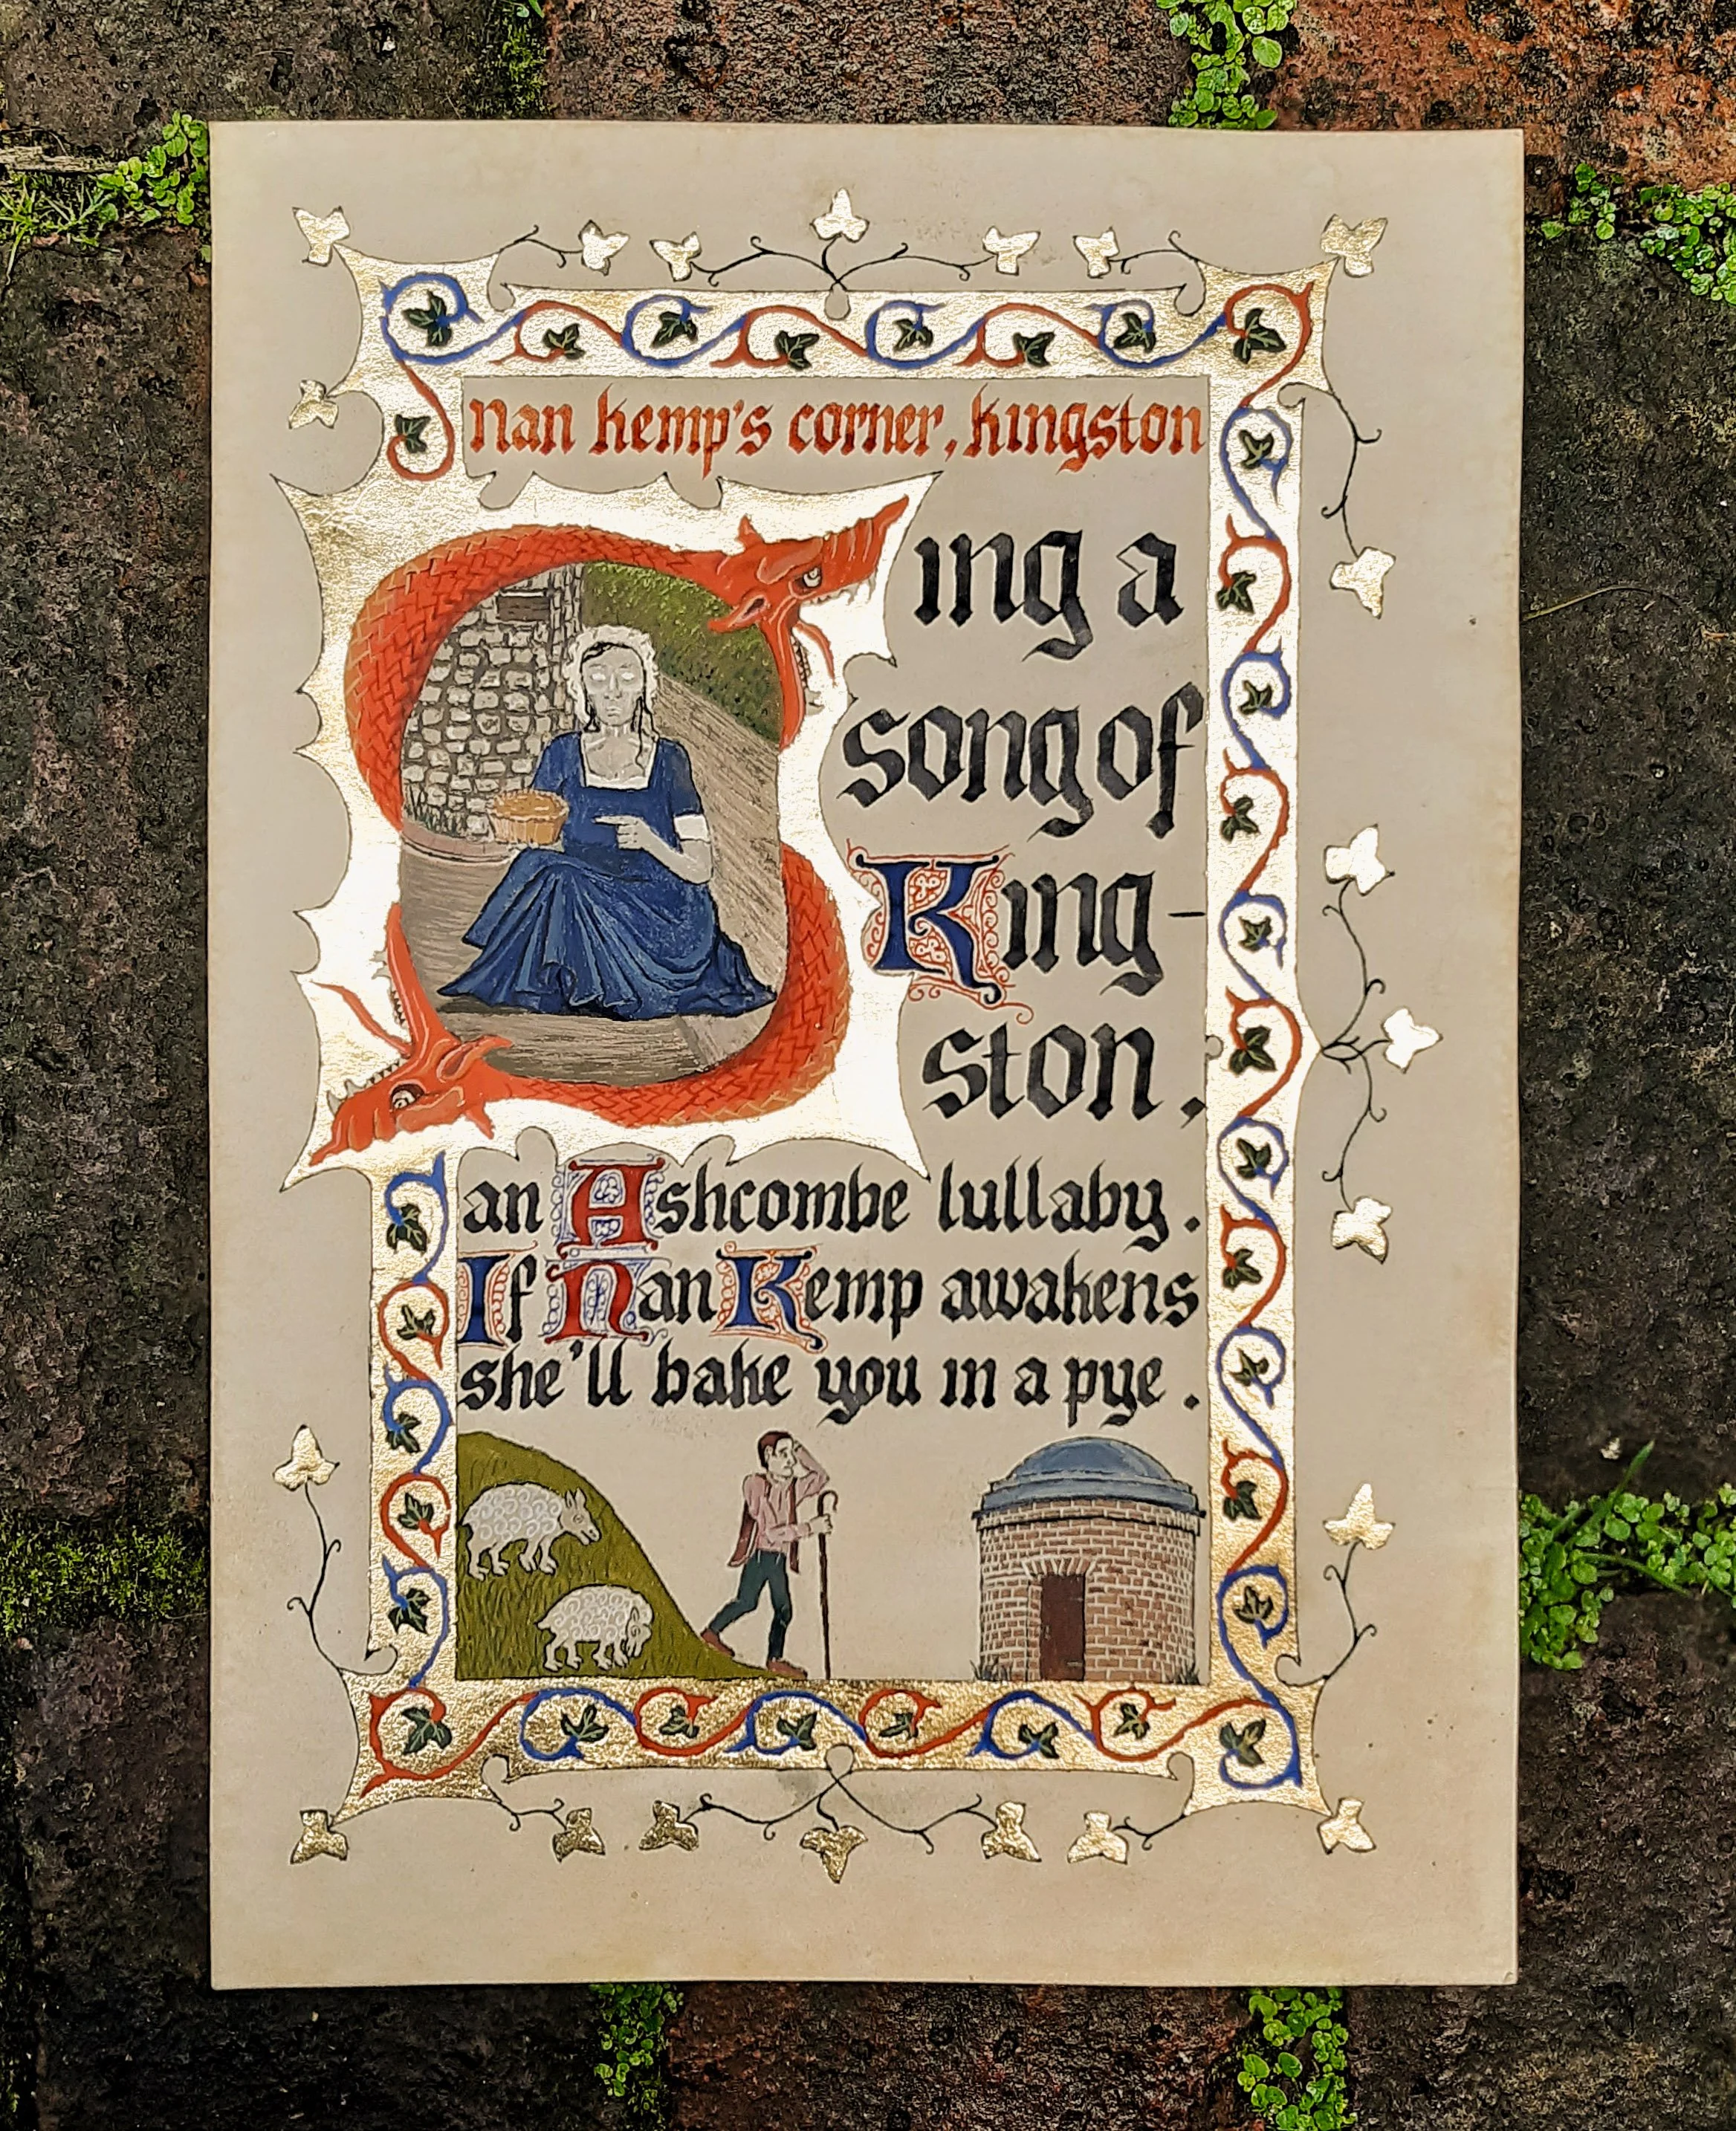 nan kemp's corner, kingston
Sing a
song of
King-
ston,
an Ashcombe lullaby.
If Nan Kemp awakens
she'll bake you in a pye.